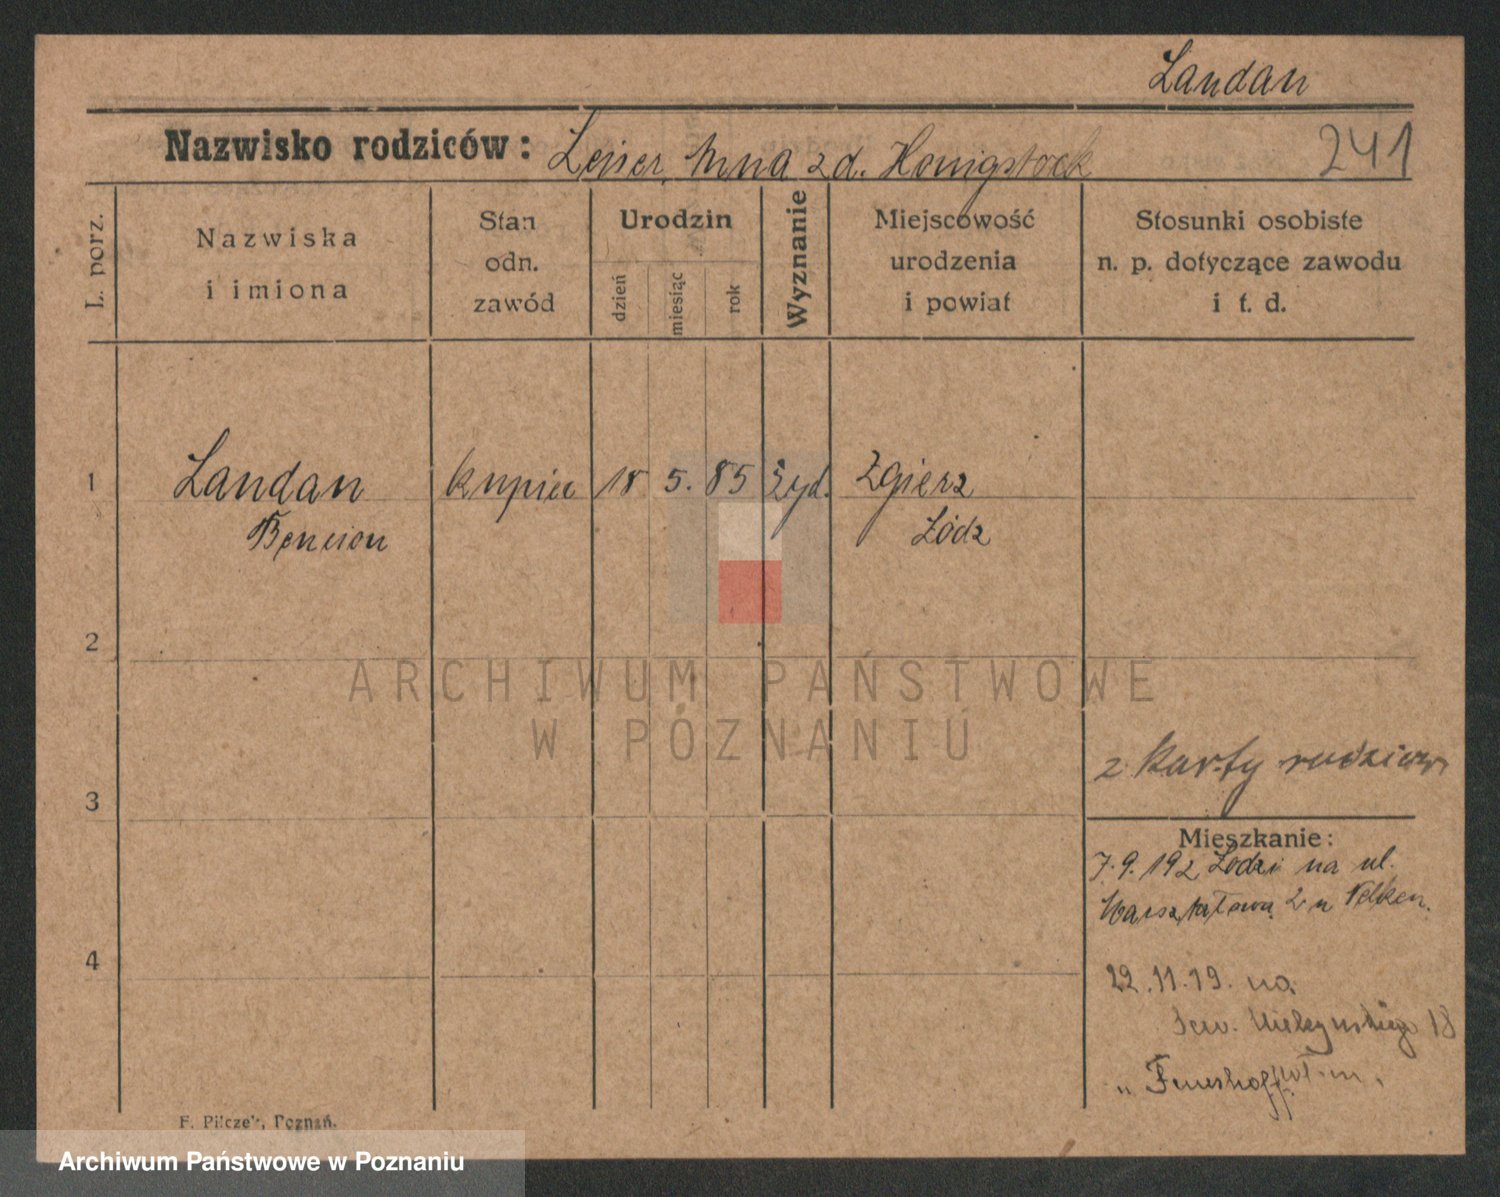 Landau
Nazwisko rodziców: Lejser, Mna zd. Honigstock 241
L. porz.
Nazwiska
i imiona
Stan
odn.
zawód
Urodzin
dzień
miesiąc
rok
Wyznanie
Miejscowość
urodzenia
i powiat
Stosunki osobiste
n. p. dotyczące zawodu
i t. d.
1 Landau kupiec 18 5. 85 żyd. Zgierz
Bencion Łódz
2
ARCHIWUM PAŃSTWOWE
W POZNANIU
z karty rodziców
3
Mieszkanie:
7.9.192 Łodzi na ul.
Warsztatową 2 u
4
22.11.19. na
Sew. Mielżyńskiego 18
F. Pilczek, Poznań.
Archiwum Państwowe w Poznaniu